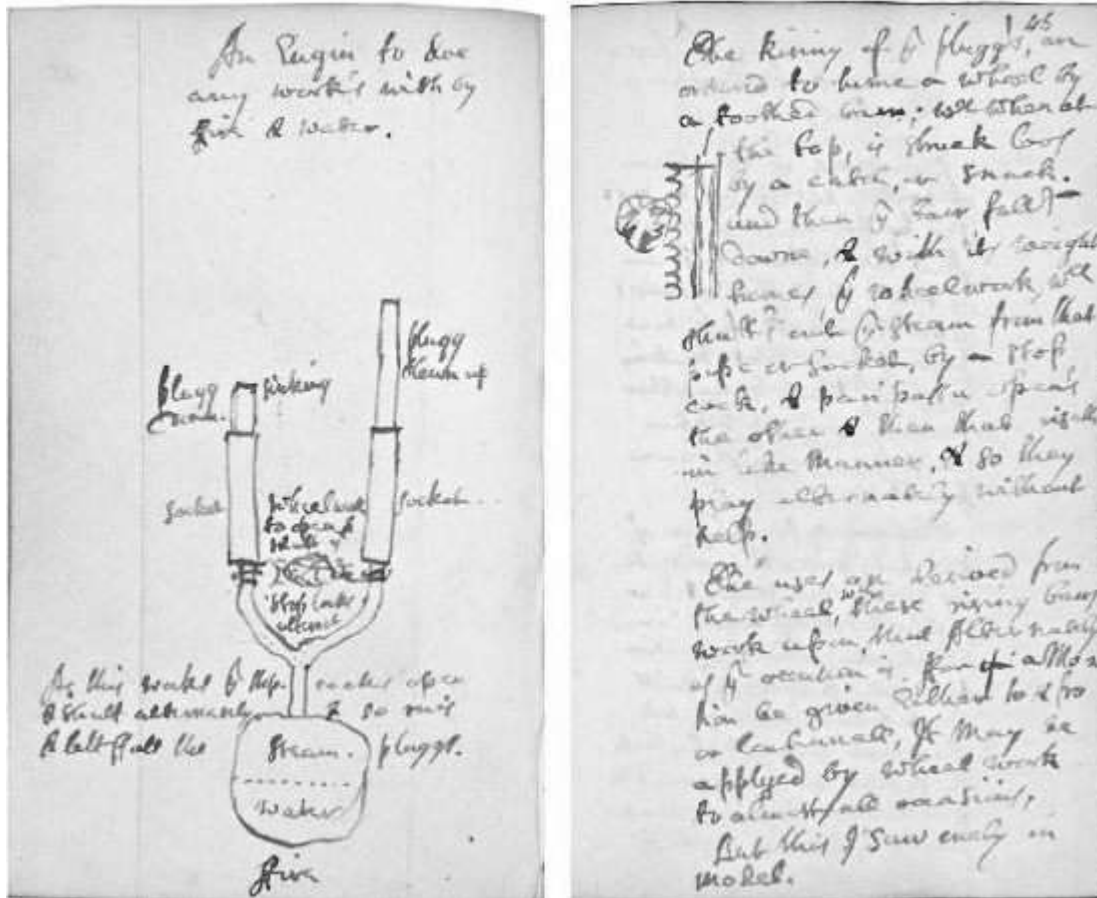 An Engin to doe
any works with by
fire & water.
plugg
blown up
plugg
downe.
sinking
socket
wheelwork
to open &
shutt ye
socket.
stop cocks
alternat
As this works ye stop cocks open
& shutt alternately & so rais
& lett fall the pluggs.
Steam.
water
fire
45
The rising of ye pluggs, are
ordered to turne a wheel by
a toothed barr: wch when at
the top, is struck loos
by a catch, or snack.
and then ye barr falls
downe, & with its weight
ye wheelwork, wch
shutts out ye steam from that
pipe or socket, by a stop
cock, & pari passu opens
the other & then that riseth
in like manner, & so they
play alternately without
help.
The uses are derived from
the wheel, wch these rising barrs
work upon, that alternately
as ye occasion is. a Mo
tion be given either to & fro
or continued, It may be
applyed by wheel work
to almost all occasions,
But this I saw onely in
model.